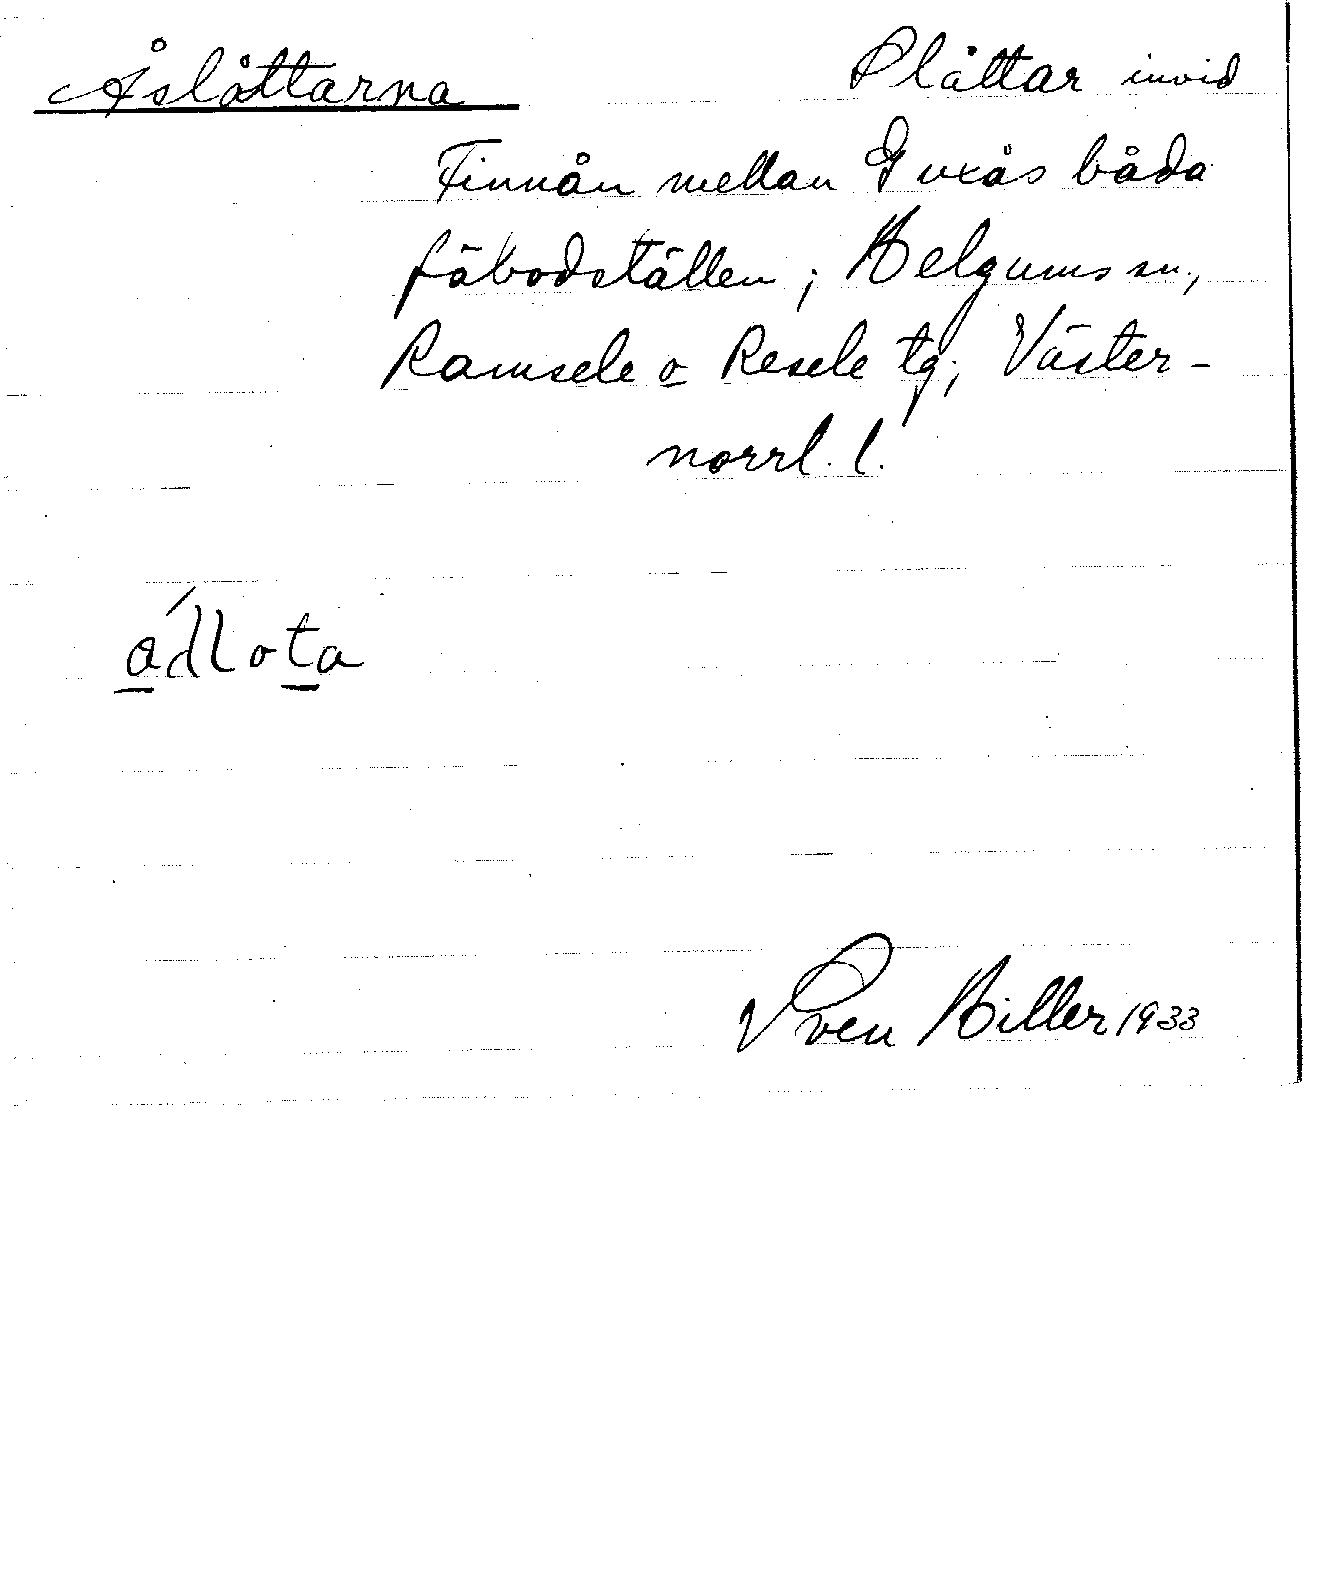 Åslåttarna Slåttar invid
Finnån mellan Guxås båda
fäbodställen; Helgums sn.,
Ramsele o Resele tg; Väster-
norrl. l.
ádlota
Sven Hiller 1933